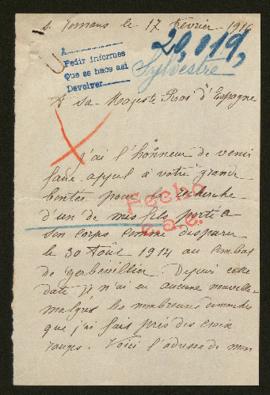 St Romans le 17 février 1916
A
Pedir informes
Que se hace así
Devolver
29,019,
Sylvestre
A sa Majesté Roi d'Espagne
J'ai l'honneur de venir
faire appel à votre grande
bonté pour la recherche
d'un de mes fils porté à
son corps comme disparu
le 30 Août 1914 au combat
de Gerbéviller. Depuis cette
date je n'ai eu aucune nouvelle
malgré les nombreuses demandes
que j'ai fait près des croix
rouges. Voici l'adresse de mon
Fecho